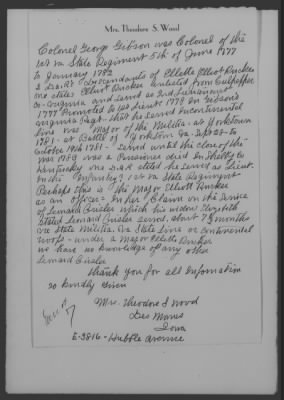 Mrs. Theodore S. Wood
Colonel George Gibson was Colonel of the
1st Va State Regiment 5th of June 1777
to January 1782
a D.A.R. descendant of Elliott Rucker
one states Elliott Rucker enlisted from Culpepper
Co- Virginia and served as 2nd Lieutenant
1777 Promoted to 1st Lieut. 1779 in Gibson's
Virginia Regt- that he served in Continental
line was Major of the Militia- at Yorktown
1781 - at Battle of Yorktown Va- Sept 28- to
October 19th 1781 - Served until the close of the
War 1783 was a Pensioner died in Shelby Co
Kentucky one D.A.R stated he served as Lieut-
in the Infantry 1st Va State Regiment
Perhaps this is the Major Elliott Rucker
as an officer - in her Claim on the service
of Lemard which his widow Elizabeth
stated Lemard served about 7½ months
Va State Militia Va State Line or Continental
troops - under a Major Elliott Rucker
we have no knowledge of any other
Lemard
Thank you for all Information
so kindly given
Mrs. Theodore S Wood
Des Moines
Iowa
E-3816- Hubbell avenue